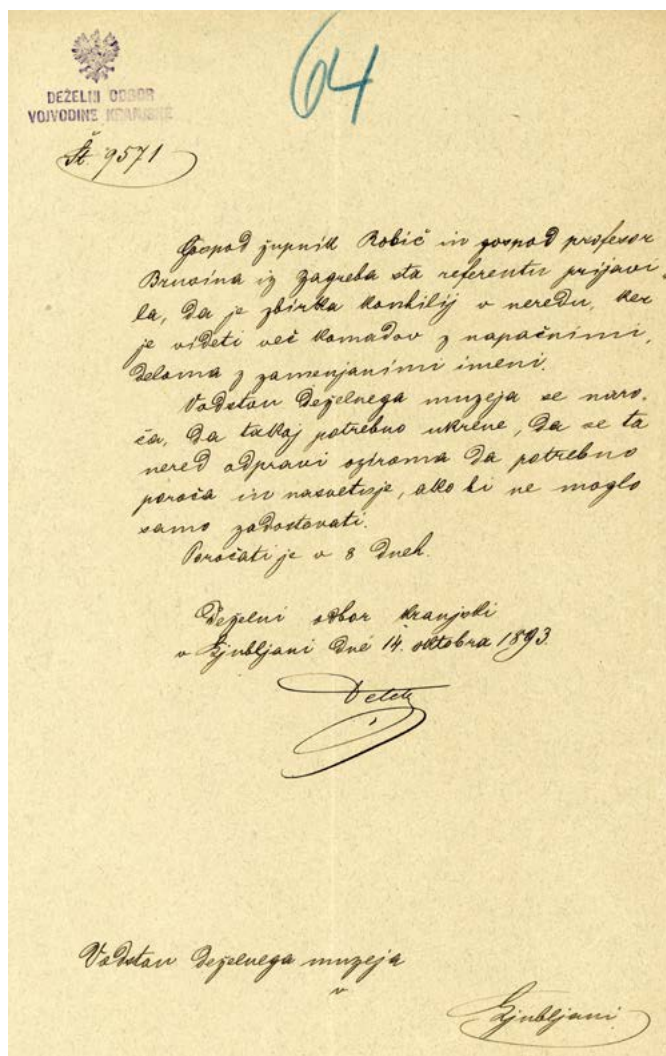 64
DEŽELNI ODBOR
VOJVODINE KRANJSKE
Št. 9571
Gospod župnik Robič in gospod profesor
Brusina iz Zagreba sta referentu prijavi,
la, da je zbirka konhilij v neredu, ker
je videti več komadov z napačnimi,
deloma z zamenjanimi imeni.
Vodstvu deželnega muzeja se naro,
ča, da takoj potrebno ukrene, da se ta
nered odpravi oziroma da potrebno
poroča in nasvetuje, ako bi ne moglo
samo zadostovati.
Poročati je v 8 dneh.
Deželni odbor kranjski
v Ljubljani dné 14. oktobra 1893.
Detela
Vodstvu deželnega muzeja
v
Ljubljani.